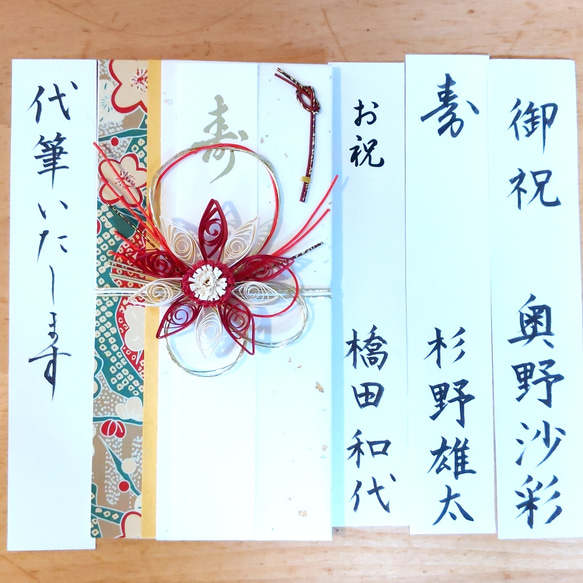 御祝
奥野沙彩
寿
杉野雄太
お祝
橋田和代
寿
代筆いたします